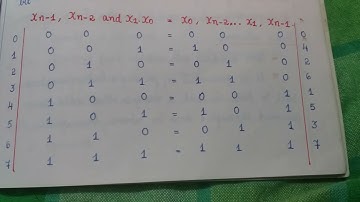 Xn-1, Xn-2 and X1 X0 = X0, Xn-2... X1, Xn-1
0 0 0 0 = 0 0 0 0
1 0 0 1 = 1 0 0 4
2 0 1 0 = 0 1 0 2
3 0 1 1 = 1 1 0 6
4 1 0 0 = 0 0 1 1
5 1 0 1 = 1 0 1 5
6 1 1 0 = 0 1 1 3
7 1 1 1 = 1 1 1 7